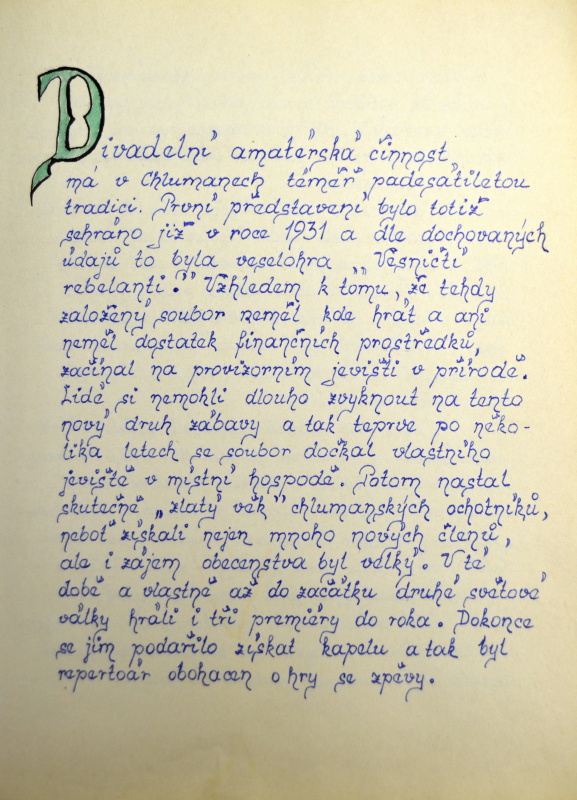 Divadelní amatérská činnost
má v Chlumanech téměř padesátiletou
tradici. První představení bylo totiž
sehráno již v roce 1931 a dle dochovaných
údajů to byla veselohra „Vesničtí
rebelanti." Vzhledem k tomu, že tehdy
založený soubor neměl kde hrát a ani
neměl dostatek finančních prostředků,
začínal na provizorním jevišti v přírodě.
Lidé si nemohli dlouho zvyknout na tento
nový druh zábavy a tak teprve po něko-
lika letech se soubor dočkal vlastního
jeviště v místní hospodě. Potom nastal
skutečně „zlatý věk" chlumanských ochotníků,
neboť získali nejen mnoho nových členů,
ale i zájem obecenstva byl velký. V té
době a vlastně až do začátku druhé světové
války hráli i tři premiéry do roka. Dokonce
se jim podařilo získat kapelu a tak byl
repertoár obohacen o hry se zpěvy.